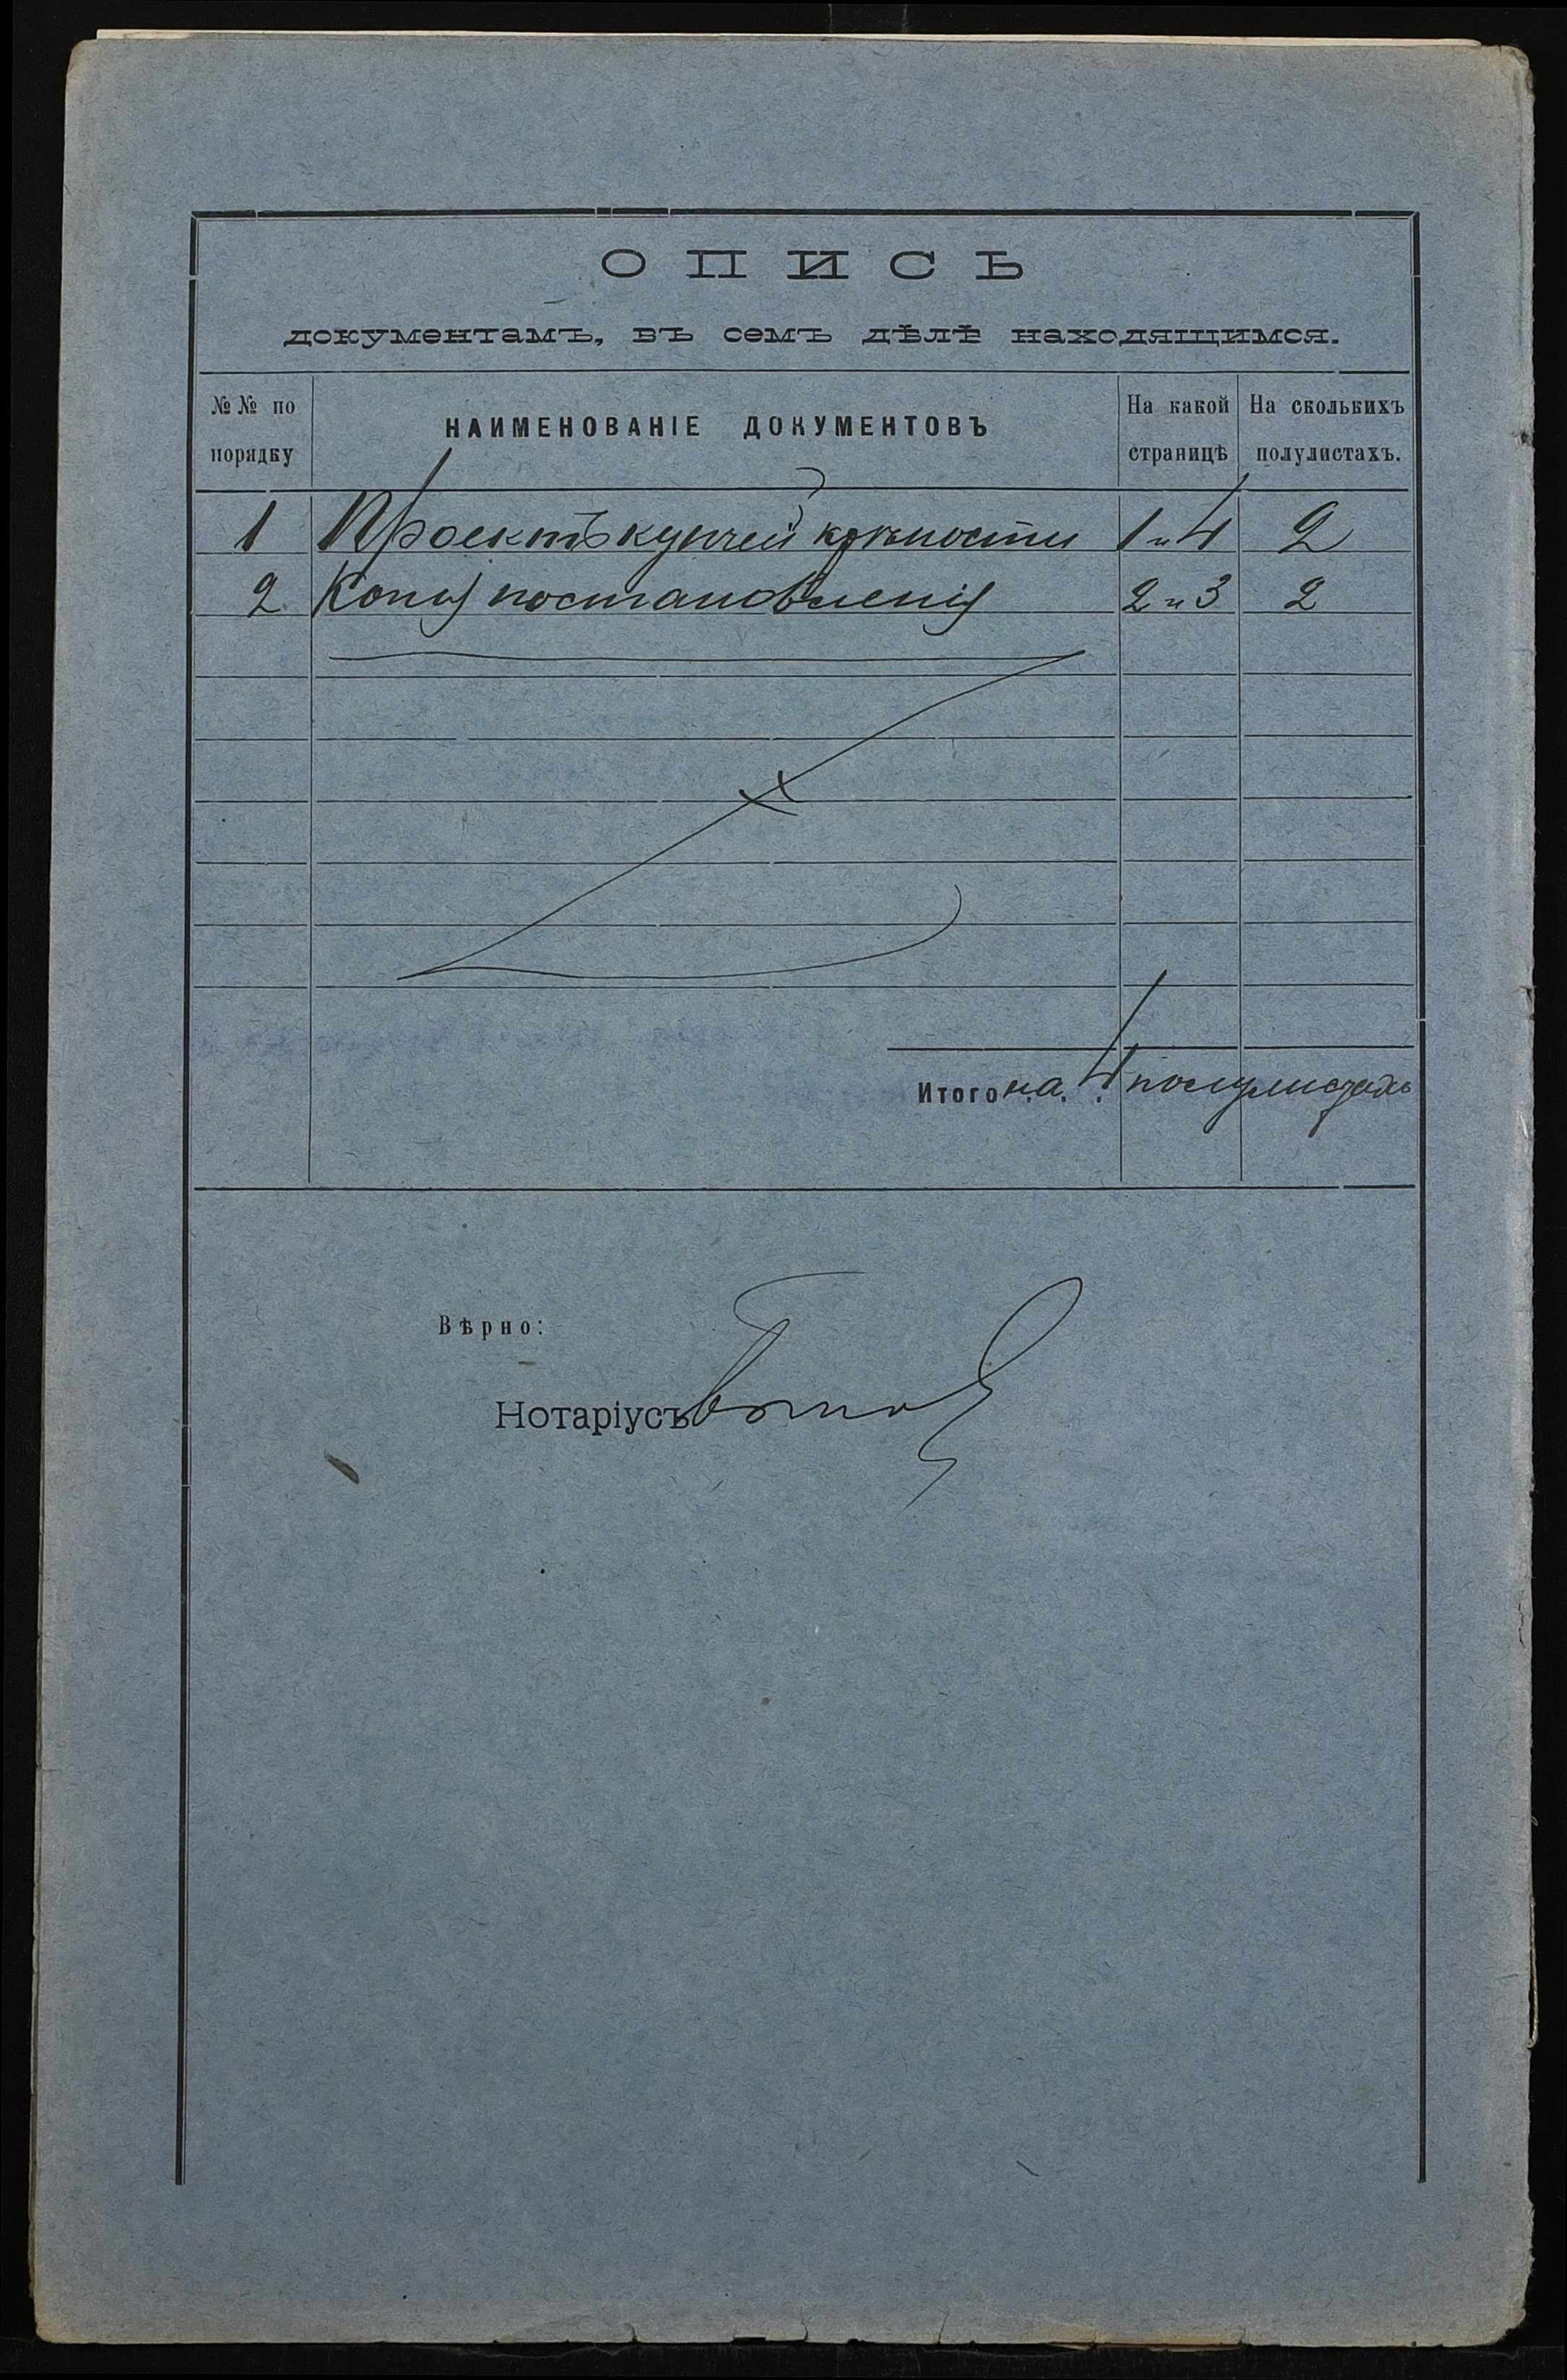 ОПИСЬ
документамъ, въ семъ дѣлѣ находящимся.
№№ по порядку
НАИМЕНОВАНІЕ ДОКУМЕНТОВЪ
На какой страницѣ
На сколькихъ полулистахъ.
1 Проектъ купчей крѣпости 1 и 4 2
2 Копія постановленія 2 и 3 2
Итого на 4 полулистахъ
Вѣрно:
Нотаріусъ